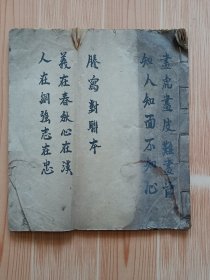 畫虎畫皮難畫骨
知人知面不知心
謄寫對聯本
義在春秋心在漢
人在綱強志在忠